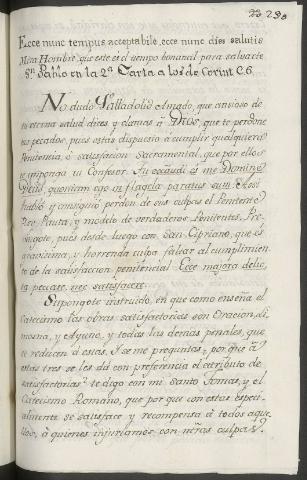 290
Ecce nunc tempus acceptabile ecce nunc dies salutis
Mira Hombre, que este es el tiempo bonanal para salvarte
Sn. Pablo en la 2ª Carta a los de Corint. C.6.
No dudo Valladolid Amado, que ansioso de
tu eterna salud dices y clamas à Dios, que te perdone
tus pecados, pues estas dispuesto à cumplir qualquiera
Penitencia, ò satisfacion Sacramental, que por ellos
te imponga tu Confesor. Domine
Deus, quoniam ego in flagela paratus sum. Assi
pidió y consiguió perdon de sus culpas el Penitente
Rey Pauta, y modelo de verdaderos Penitentes. Pre-
vengote, pues desde luego con San Cipriano, que es
gravisima, y horrenda culpa faltar al cumplimien-
to de la satisfaccion penitencial. Ecce majora delic-
ta peccare, nec satisfacere.
Supongote instruido, en que como enseña el
Catecismo las obras satisfactorias son Oracion, Li-
mosna, y Ayuno, y todas las demas penales, que
se reducen à estas. Y se me preguntas, por què à
estas tres se les dà con preferencia el atributo de
satisfactorias? te digo con mi Santo Tomas, y el
Catecismo Romano, que por que con estas especi-
almente se satisface y recompensa à todos aque-
llos, à quienes injuriamos con ntrãs culpas.